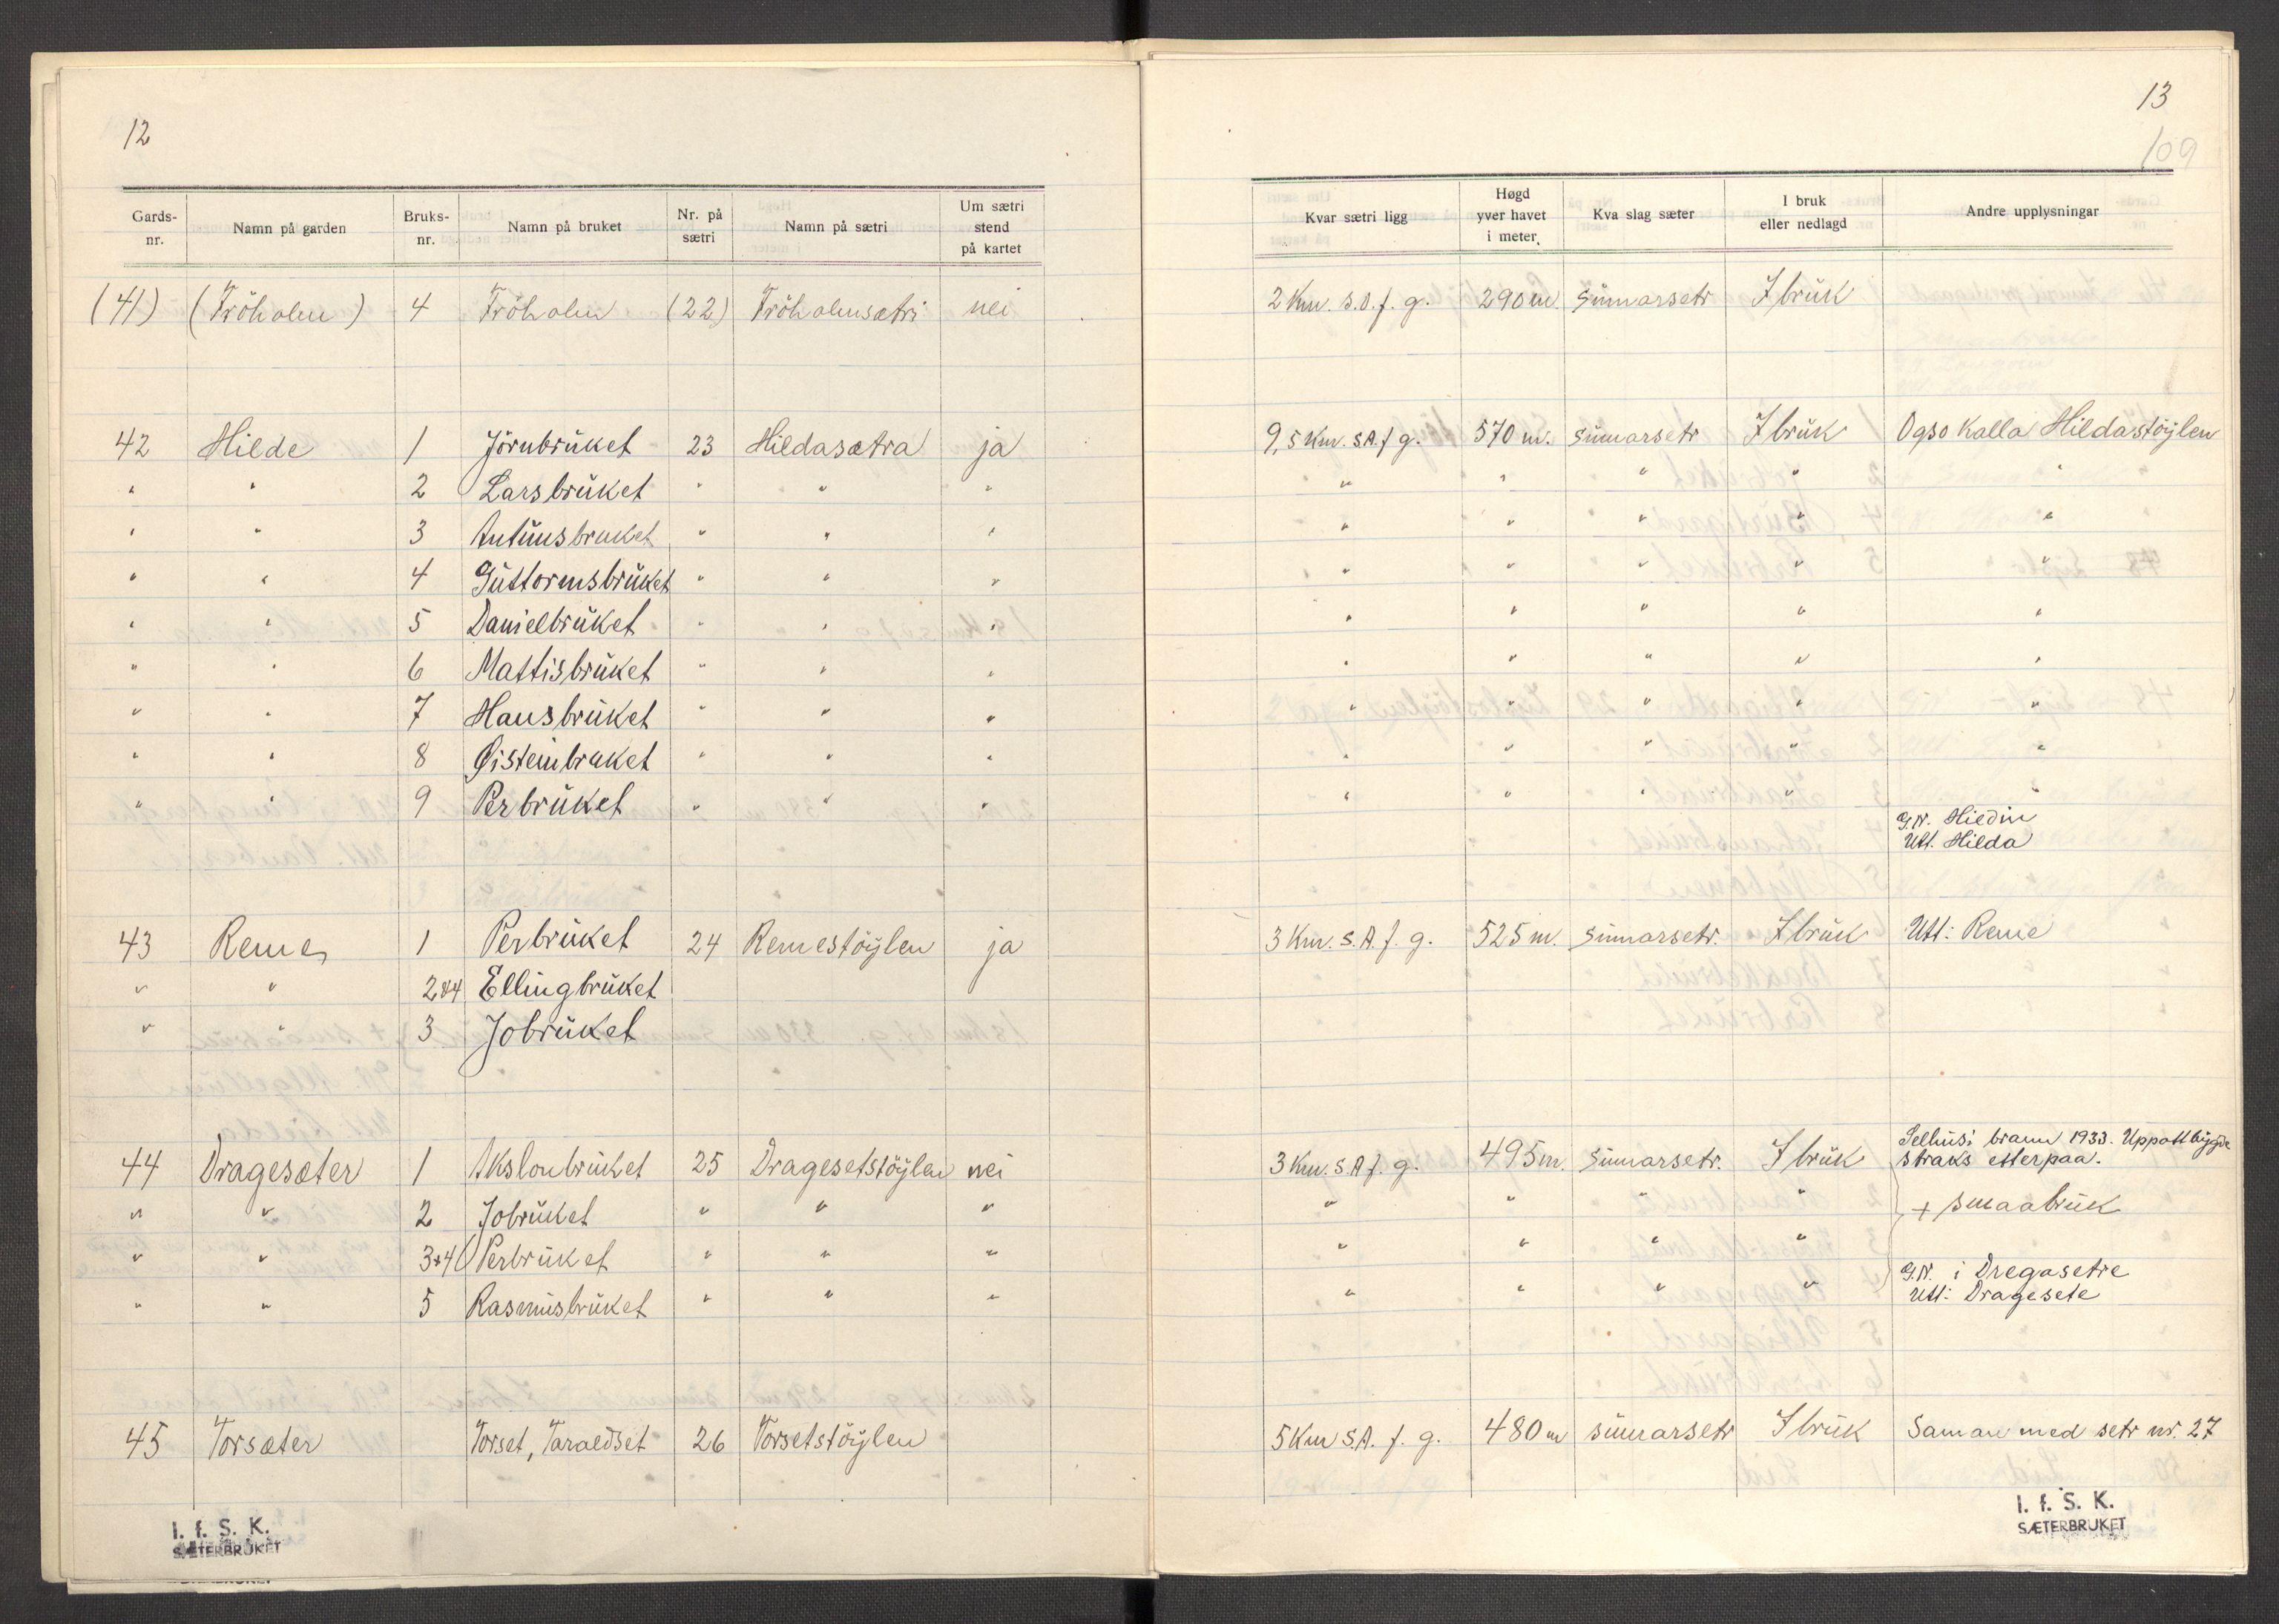 12
Gards-nr. Namn på garden Bruks-nr. Namn på bruket Nr. på sætri Namn på sætri Um sætri stend på kartet
(41) (Fröholm) 4 Fröholm (22) Fröholmsætri nei
42 Hilde 1 Jörnbrüket 23 Hildasætra ja
" " 2 Larsbrüket " " "
" " 3 Antünsbruket " " "
" " 4 Güttormsbrüket " " "
" " 5 Danielbrüket " " "
" " 6 Mattisbrüket " " "
" " 7 Hansbrüket " " "
" " 8 Øisteinbruket " " "
" " 9 Perbrüket " " "
43 Reme 1 Perbrüket 24 Remestöylen ja
" " 2+4 Ellingbrüket
" " 3 Jobrüket
44 Dragesæter 1 Akslonbrüket 25 Dragesetstöylen nei
" " 2 Jobrüket " " "
" " 3+4 Perbrüket " " "
" " 5 Rasmüsbrüket " " "
45 Torsæter Torset, Taraldset 26 Torsetstöylen
I. f. S. K.
SÆTERBRUKET
13
109
Kvar sætri ligg Høgd yver havet i meter. Kva slag sæter I bruk eller nedlagd Andre upplysningar
2 Km. S.O. f. g. 290 m. sümarsetr I brük
9,5 Km. S.A. f. g. 570 m. sümarsetr I brük Ogso kalla Hildastöylen
" " " " "
" " " " "
" " " " "
" " " " "
" " " " "
" " " " "
" " " " "
" " " " "
G.N. Hildin
Utt. Hilda
3 Km. S.A. f. g. 525 m. sümarsetr. I brük Utt: Reme
Selhüsi brann 1933. Uppattbygde
3 Km. S.A f. g. 495 m. sümarsetr. I brük straks etterpaa.
" " " " + smaabrük
" " " "
" " " " G.N. i Dregasetre
Utt: Dragesete
5 Km S.A. f. g. 480 m sümarsetr I brük Saman med setr nr. 27
I. f. S. K.
SÆTERBRUKET